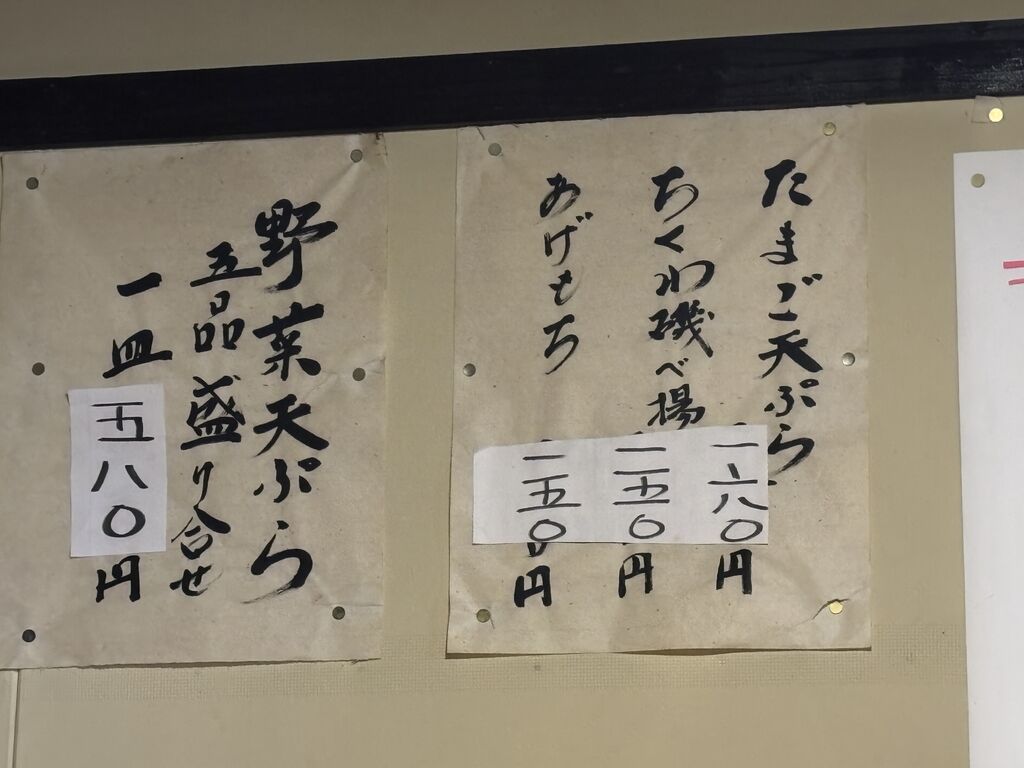 たまご天ぷら 一六〇円
ちくわ磯べ揚 一五〇円
あげもち 一五〇円
野菜天ぷら
五品盛り合せ
一皿 五八〇円